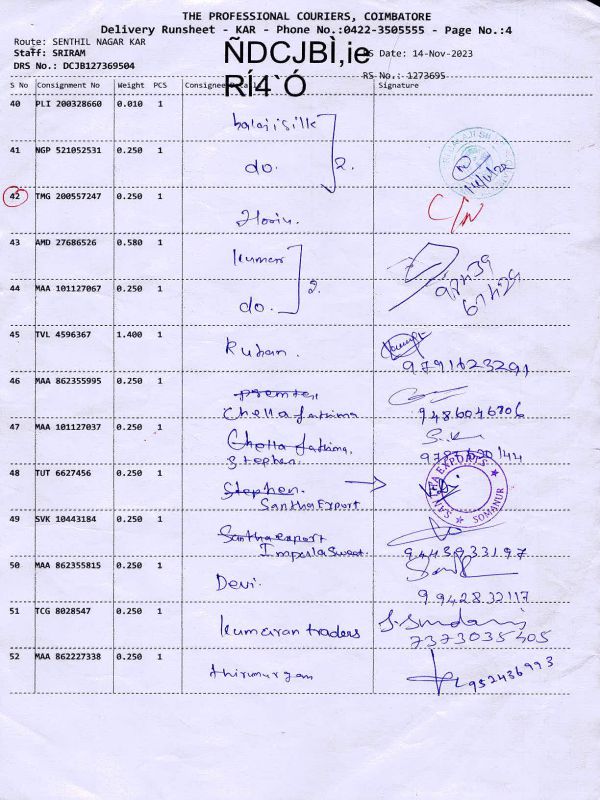 THE PROFESSIONAL COURIERS, COIMBATORE
Delivery Runsheet - KAR - Phone No.:0422-3505555 - Page No.:4
Route: SENTHIL NAGAR KAR
Staff: SRIRAM
RS Date: 14-Nov-2023
DRS No.: DCJB127369504
RS No.: 1273695
ÑDCJBÌ,ie
RÍ4`Ó
S No Consignment No Weight PCS Consignee Signature
40 PLI 200328660 0.010 1
balajisilk
41 NGP 521052531 0.250 1
do. 2.
42 TMG 200557247 0.250 1
43 AMD 27686526 0.580 1
kumar
44 MAA 101127067 0.250 1
do. 2.
45 TVL 4596367 1.400 1
Ruban.
9791623291
46 MAA 862355995 0.250 1
Chella fathima
9486046806
47 MAA 101127037 0.250 1
Chella fathima,
Stephen.
48 TUT 6627456 0.250 1
Stephen.
Santha Export.
EXPORTS
SOMANUR
49 SVK 10443184 0.250 1
Santha export
Imperla Sweet.
9443933197
50 MAA 862355815 0.250 1
Devi.
9942832117
51 TCG 8028547 0.250 1
kumaran traders
7373035405
52 MAA 862227338 0.250 1
thirumurgan
952436993